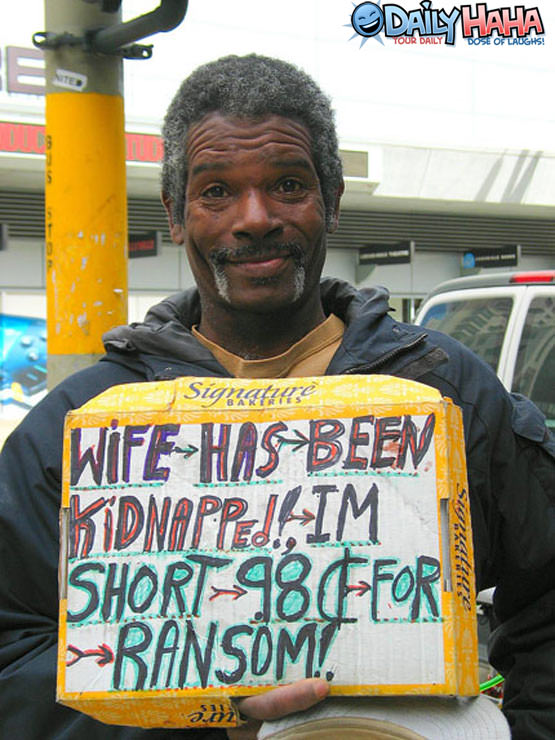 DAILYHAHA
YOUR DAILY DOSE OF LAUGHS!
NITED
BUS STOP
Signature
BAKERIES
WiFE→HAS→BEEN
KiDNAPPEd!!→IM
SHORT→98¢→FOR
→RANSOM!
Signature
BAKERIES